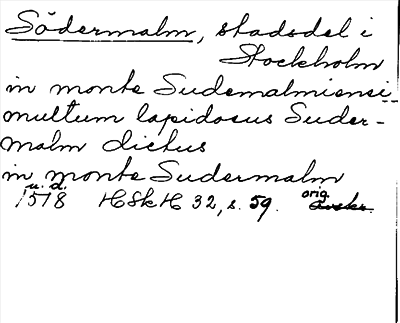 Södermalm, stadsdel i
Stockholm
in monte Sudermalmiensi
multum lapidosus Suder-
malm dictus
in monte Sudermalm
u. d.
1518 HSkH 32, s. 59. orig.